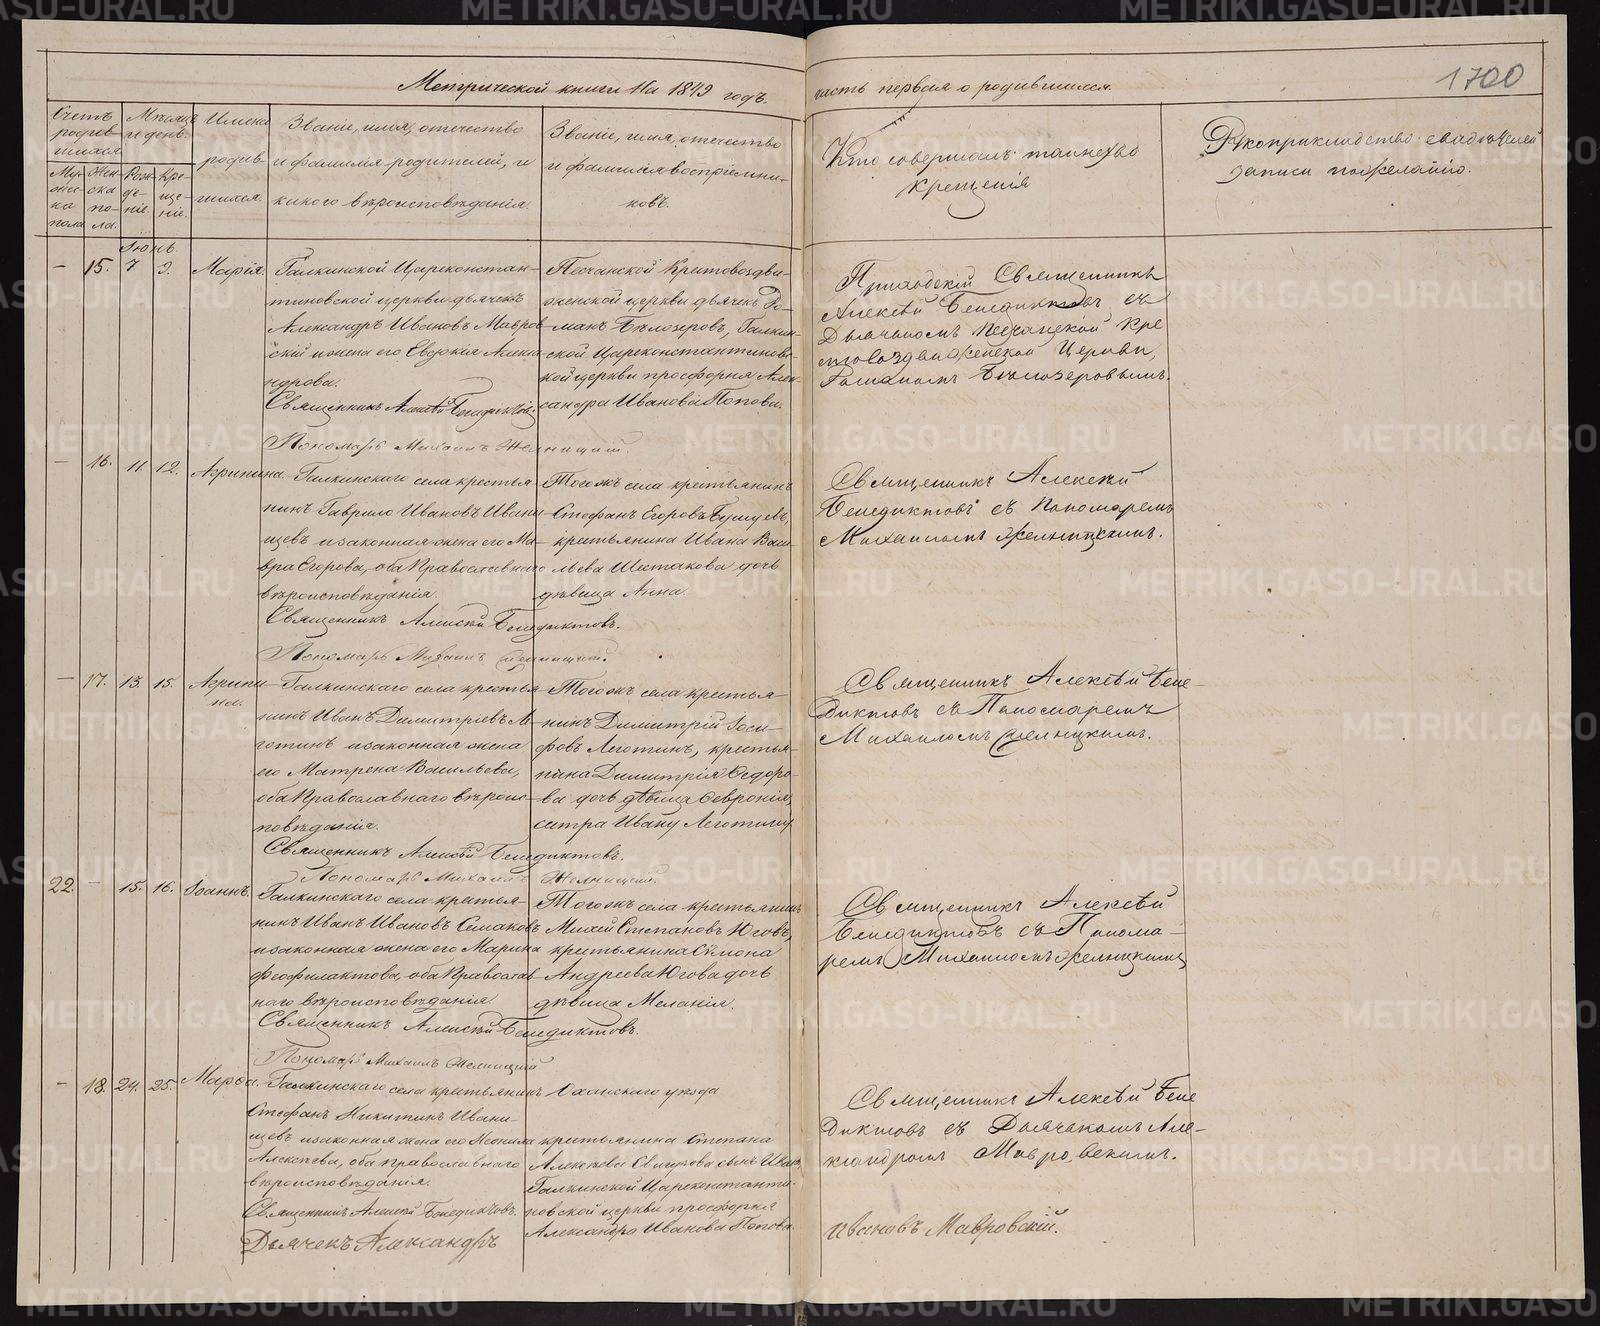 Метрической книги На 1849 годъ.
часть первая о родившихся.
1700
Счетъ родив-шихся
Мужес-ка пола
Жен-ска по-ла.
Мѣсяцъ и день.
Рож-де-ніе.
Кре-ще-ніе.
Имена родив-шихся.
Званіе, имя, отечество
и фамилія родителей, и
какого вѣроисповѣданія.
Званіе, имя, отечество
и фамилія воспріемни-
ковъ.
Кто совершалъ таинство
крещенія
Рукоприкладство свидѣтелей
записи по желанію.
Іюнь.
— 15. 7 9. Марія.
Галкинской Цареконстан-
тиновской церкви дьячекъ
Александръ Ивановъ Мавров-
скій и жена его Евдокія Алекса-
ндрова.
Священникъ Алексѣй Бенедиктовъ.
Пономарь Михаилъ Желницкій.
Песчанской Крестовоздви-
женской церкви дьячекъ Ро-
манъ Бѣлозеровъ, Галкин-
ской Цареконстантиновс-
кой церкви просфорня Алек-
сандра Иванова Попова.
Приходскій Священникъ
Алексѣй Бенедиктовъ съ
Дьячкомъ Песчанской Кре
стовоздвиженской Церкви,
Романомъ Бѣлозеровымъ.
— 16. 11. 12. Агрипина.
Галкинскаго села крестья-
нинъ Гаврило Ивановъ Ивани-
щевъ и законная жена его Ма-
вра Егорова, оба Православнаго
вѣроисповѣданія.
Священникъ Алексѣй Бенедиктовъ.
Пономарь Михаилъ Желницкій.
Тогожъ села крестьянинъ
Стефанъ Егоровъ
крестьянина Ивана Васи-
льева Шестакова дочь
дѣвица Анна.
Священникъ Алексѣй
Бенедиктовъ съ Пономаремъ
Михаиломъ Желницкимъ.
— 17. 13. 15. Агрипи-
на.
Галкинскаго села крестья-
нинъ Иванъ Димитріевъ Ле-
готинъ и законная жена
его Матрена Васильева,
оба Православнаго вѣроис-
повѣданія.
Священникъ Алексѣй Бенедиктовъ.
Пономарь Михаилъ Желницкій.
Тогожъ села крестья-
нинъ Димитрій Іоси-
фовъ Леготинъ, крестья-
нина Димитрія Ѳедоро-
ва дочь дѣвица Ѳевронія,
сестра Ивану Леготину
Священникъ Алексѣй Бене-
диктовъ съ Пономаремъ
Михаиломъ Желницкимъ.
22. — 15. 16. Іоаннъ.
Галкинскаго села крестья-
нинъ Иванъ Ивановъ Семаковъ
и законная жена его Марина
Феофилактова, оба Православ-
наго вѣроисповѣданія.
Священникъ Алексѣй Бенедиктовъ.
Пономарь Михаилъ Желницкій
Тогожъ села крестьянинъ
Михей Степановъ Юговъ,
крестьянина Симона
Андреева Югова дочь
дѣвица Меланія.
Священникъ Алексѣй
Бенедиктовъ съ Понома-
ремъ Михаиломъ Желницкимъ
— 18. 24. 25. Марѳа.
Галкинскаго села крестьянинъ
Стефанъ Никитинъ Ивани-
щевъ и законная жена его Неонила
Алексѣева, оба православнаго
вѣроисповѣданія.
Священникъ Алексѣй Бенедиктовъ.
Дьячекъ Александръ
Оханскаго уѣзда
крестьянина Степана
Алексѣева сынъ Иванъ,
Галкинской Цареконстанти-
новской церкви просфорня
Александра Иванова Попова.
Священникъ Алексѣй Бене
диктовъ съ Дьячкомъ Але-
ксандромъ Мавровскимъ.
Ивановъ Мавровскій.
METRIKI.GASO-URAL.RU